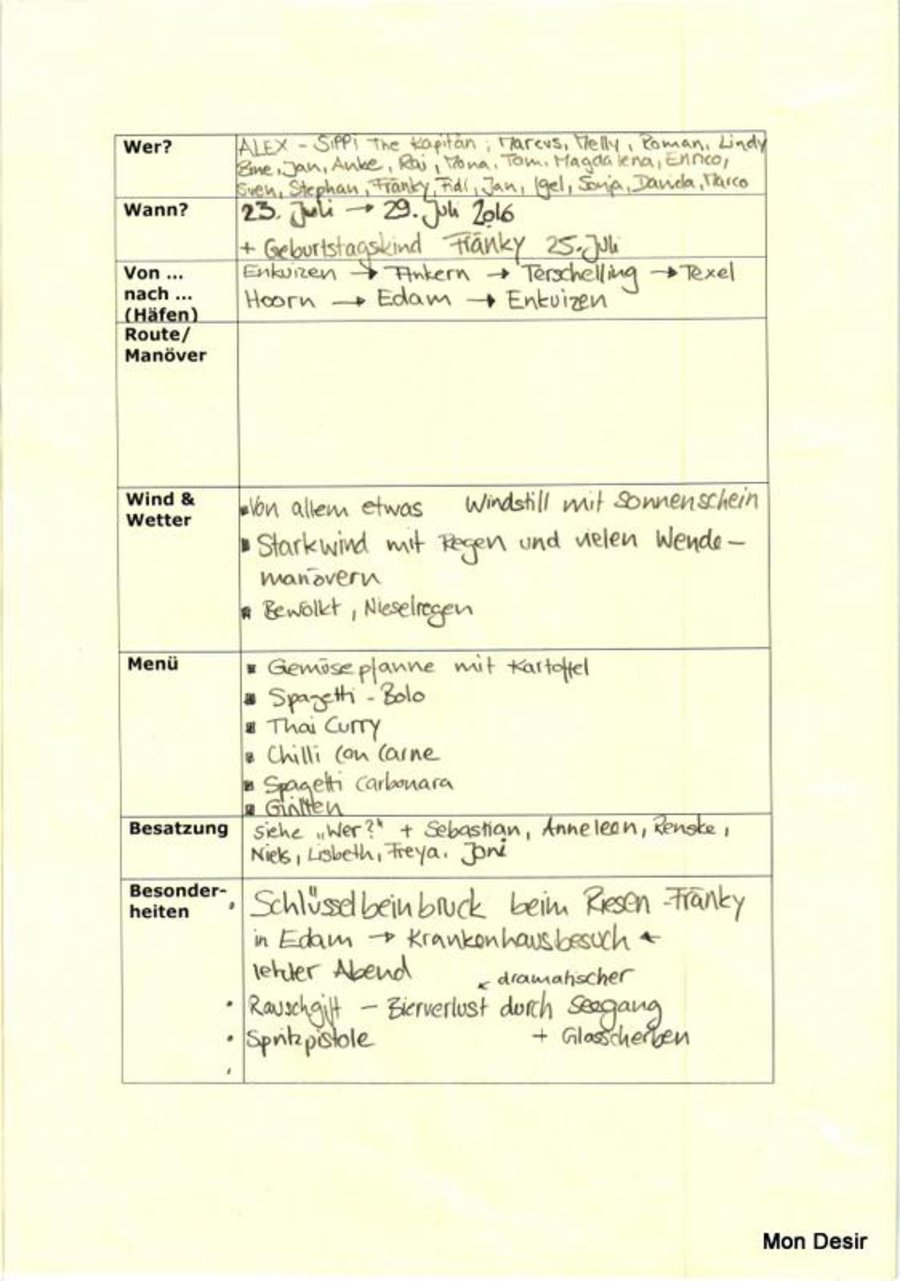 Wer? ALEX - SiPPi The Kapitän, Marcus, Melly, Roman, Lindy
Eine, Jan, Anke, Rai, Mona, Tom, Magdalena, Enrico,
Sven, Stephan, Fränky, Fidi, Jan, Igel, Sonja, Daniela, Marco
Wann? 23. Juli → 29. Juli 2016
+ Geburtstagskind Fränky 25. Juli
Von ... Enkuizen → Ankern → Terschelling → Texel
nach ... Hoorn → Edam → Enkuizen
(Häfen)
Route/
Manöver
Wind & Von allem etwas Windstill mit Sonnenschein
Wetter Starkwind mit Regen und vielen Wende-
manövern
Bewölkt, Nieselregen
Menü Gemüsepfanne mit Kartoffel
Spagetti - Bolo
Thai Curry
Chilli Con Carne
Spagetti Carbonara
Besatzung siehe „Wer?“ + Sebastian, Anneleen, Renske,
Niels, Lisbeth, Freya, Joni
Besonder- Schlüsselbeinbruck beim Riesen-Fränky
heiten in Edam → Krankenhausbesuch ←
letzter Abend dramatischer
Rauschgift - Bierverlust durch Seegang
Spritzpistole + Glasscherben
Mon Desir